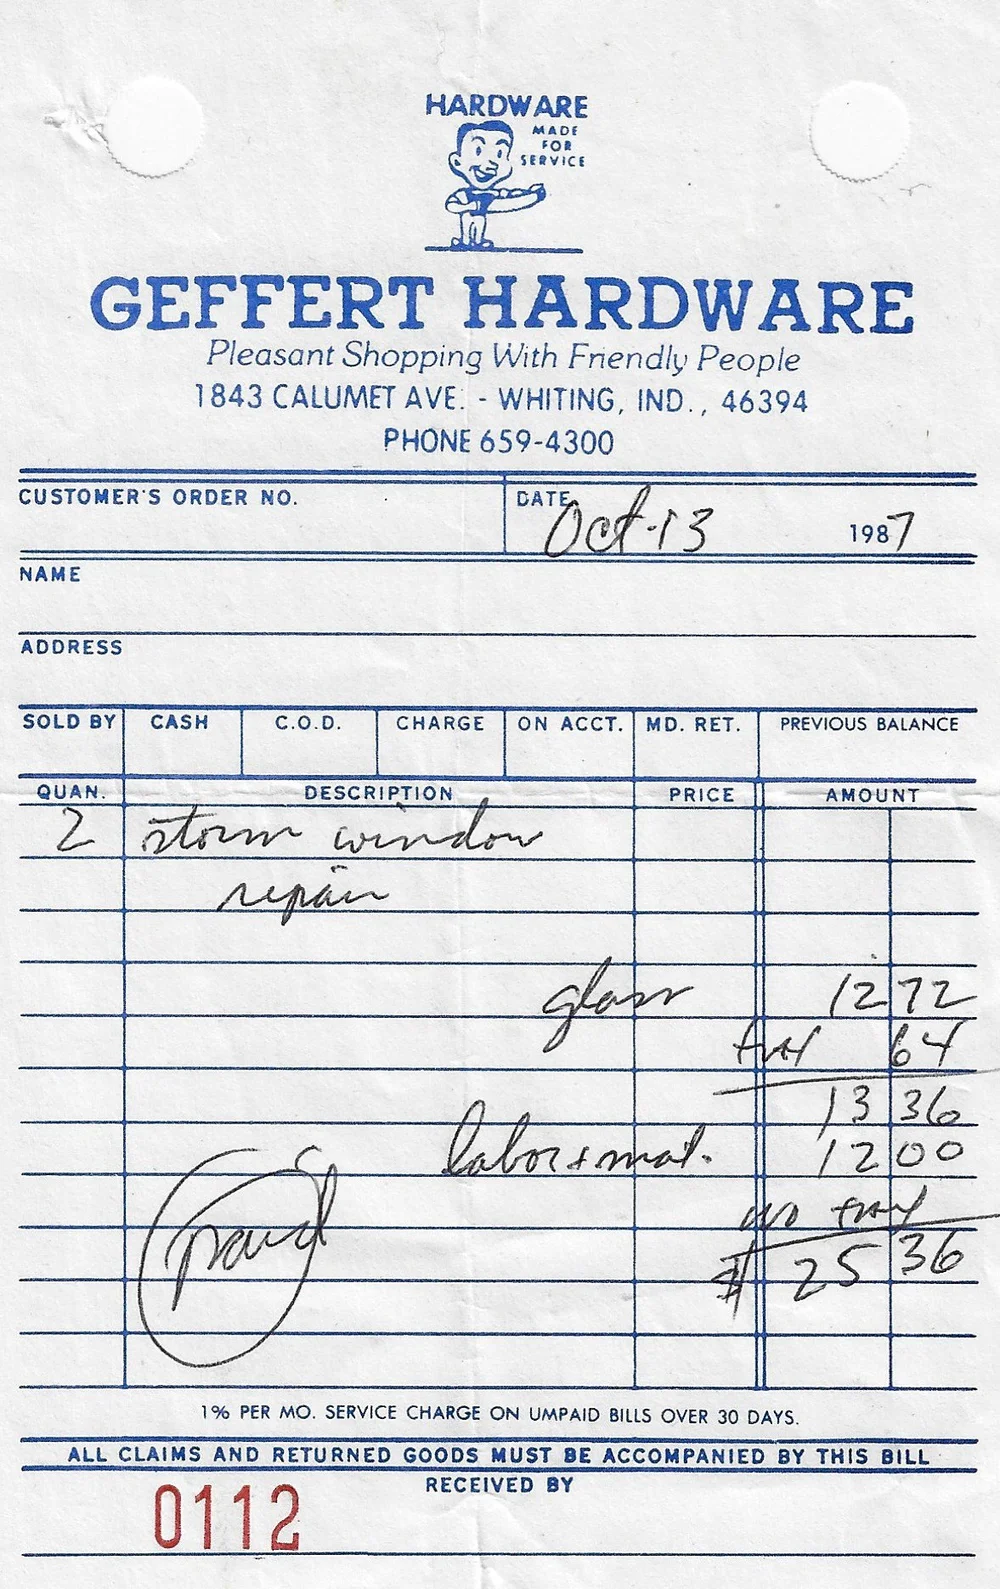 HARDWARE
MADE
FOR
SERVICE
GEFFERT HARDWARE
Pleasant Shopping With Friendly People
1843 CALUMET AVE. - WHITING, IND., 46394
PHONE 659-4300
CUSTOMER'S ORDER NO. DATE Oct-13 1987
NAME
ADDRESS
SOLD BY CASH C.O.D. CHARGE ON ACCT. MD. RET. PREVIOUS BALANCE
QUAN. DESCRIPTION PRICE AMOUNT
2 storm window
repair
glass 12 72
tax 64
13 36
labor + mat. 12 00
no tax
paid $ 25 36
1% PER MO. SERVICE CHARGE ON UMPAID BILLS OVER 30 DAYS.
ALL CLAIMS AND RETURNED GOODS MUST BE ACCOMPANIED BY THIS BILL
RECEIVED BY
0112